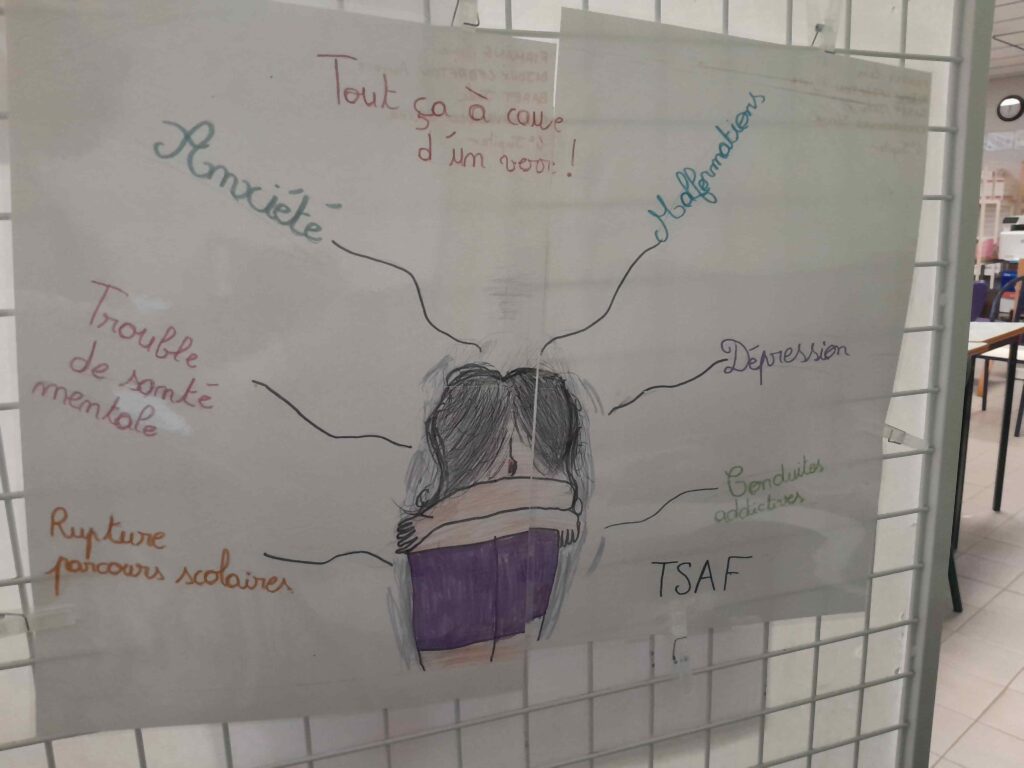 Tout ça à cause
d'un verre !
Anxiété
Malformations
Trouble
de santé
mentale
Dépression
Rupture
parcours scolaires
Conduites
addictives
TSAF